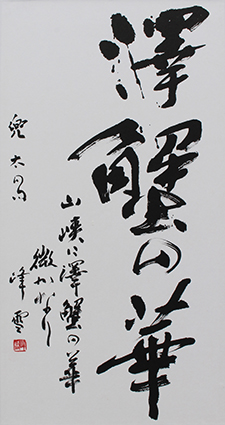 澤蟹の華
山峡に澤蟹の華
微かなり
兜太句
峰雪